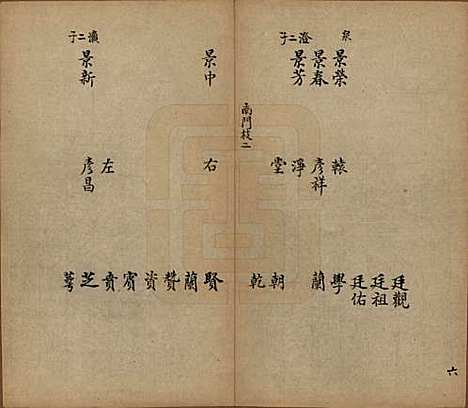 泉
澄二子
景榮
景春
景芳
轅
彦祥
淨
堂
廷觀
廷祖
廷佑
學
蘭
朝
乾
六
南門枝二
灝二子
景中
景新
右
左
彦昌
賢
蘭
贊
資
賓
賁
芝
萼